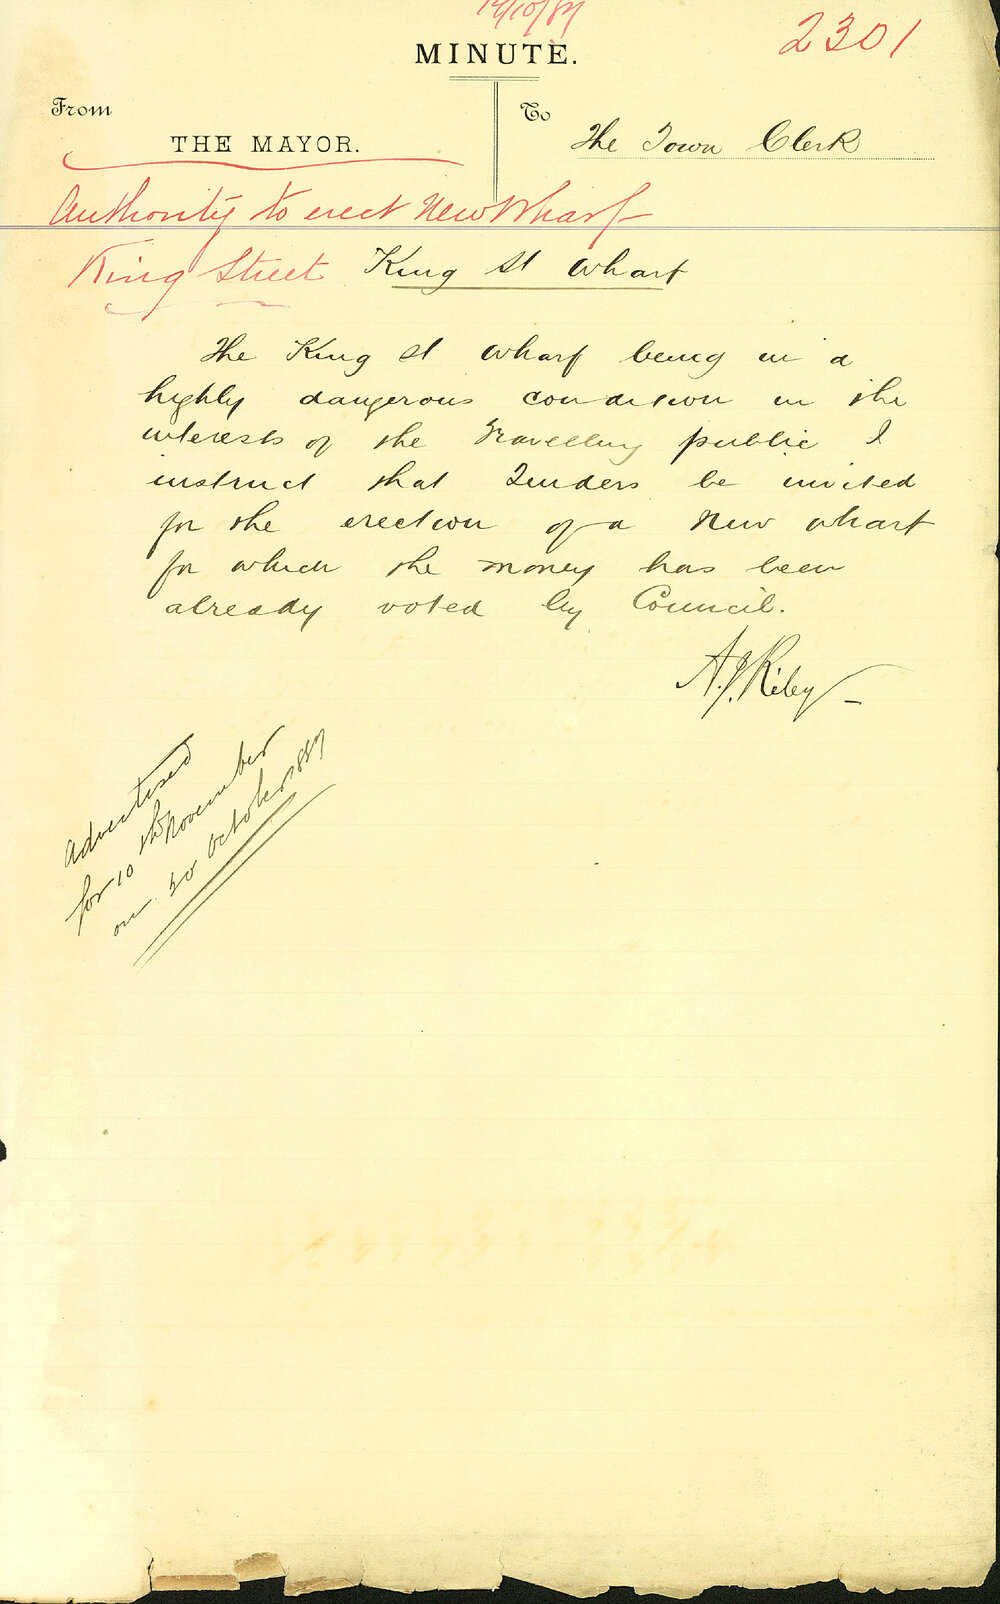 /10/87
2301
MINUTE.
From
To
THE MAYOR.
The Town Clerk
Authority to erect New Wharf
King Street
King St Wharf
The King St Wharf being in a
highly dangerous condition in the
interests of the Travelling public I
instruct that Tenders be invited
for the erection of a New wharf
for which the money has been
already voted by Council.
A.J. Riley
Advertised
for 10th November
on 20 October 1887